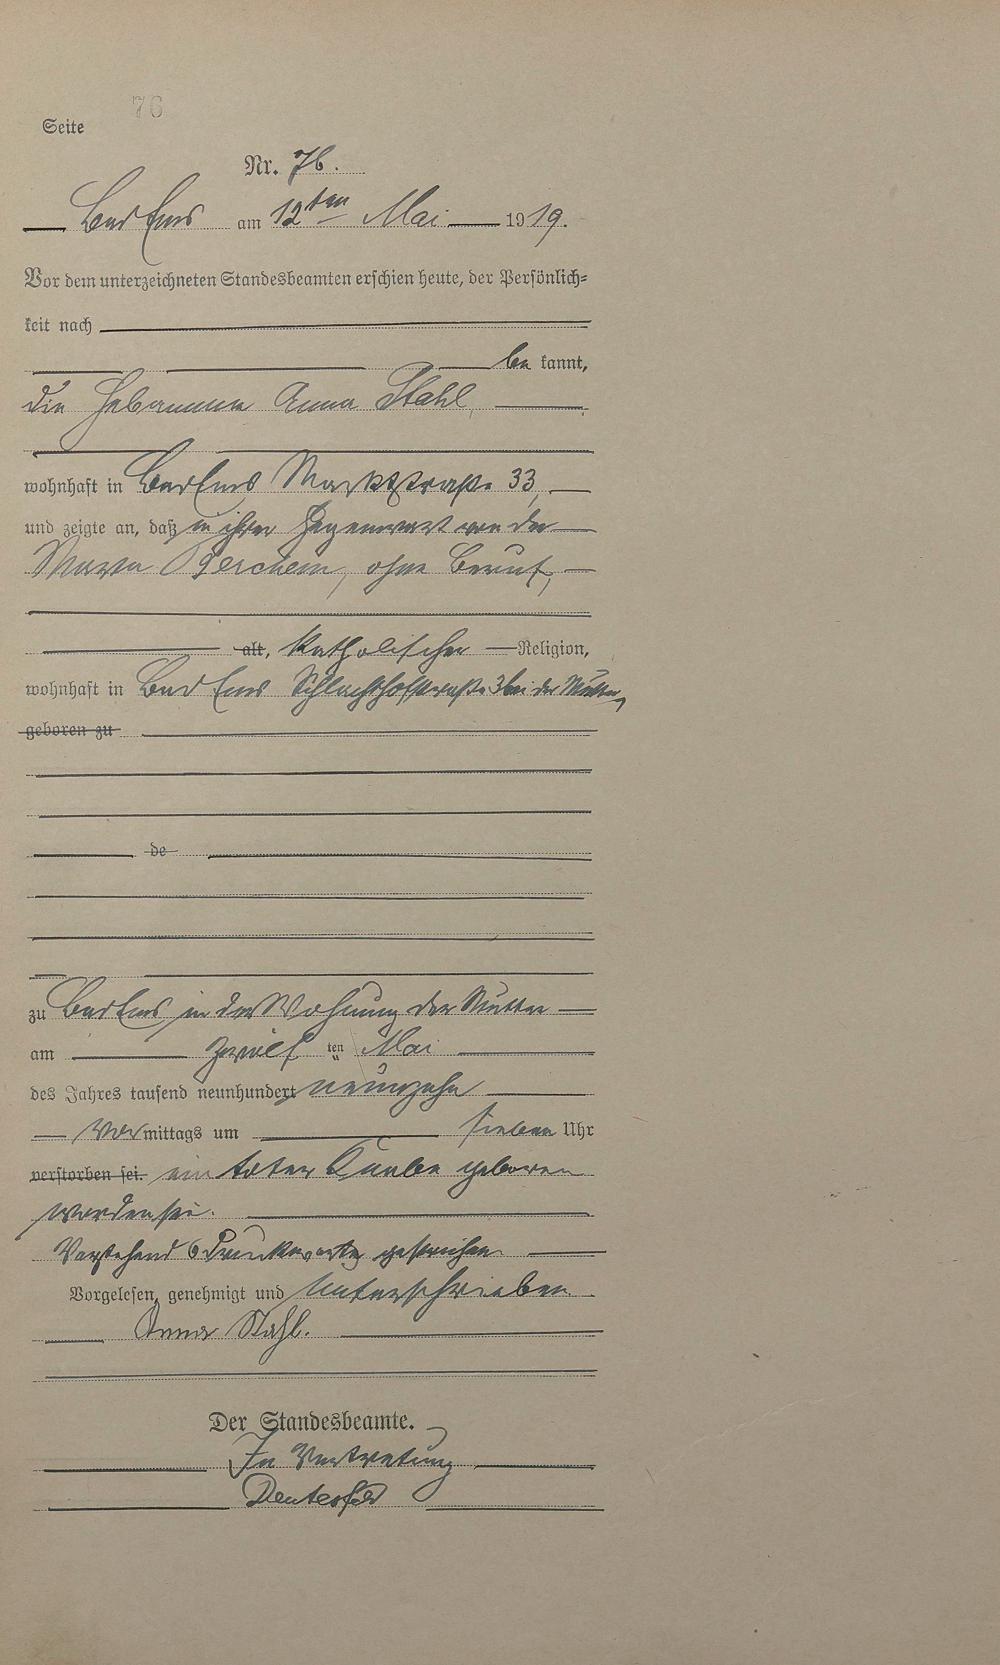 76
Seite
Nr. 76.
Bad Ems am 12ten Mai 1919.
Vor dem unterzeichneten Standesbeamten erschien heute, der Persönlich-
keit nach
be kannt,
die Hebamme Anna Stahl,
wohnhaft in Bad Ems Marktstraße 33,
und zeigte an, daß in ihrer Gegenwart von der
Maria, ohne Beruf,
alt, katholischer Religion,
wohnhaft in Bad Ems Schlachthofstraße 3 bei der Mutter,
geboren zu
de
zu Bad Ems in der Wohnung der Mutter
am zwölf ten Mai
des Jahres tausend neunhundert neunzehn
Vormittags um sieben Uhr
verstorben sei. ein toter Knabe geboren
worden sei.
Vorstehend 6 Druckworte gestrichen.
Vorgelesen, genehmigt und unterschrieben
Anna Stahl.
Der Standesbeamte.
In Vertretung